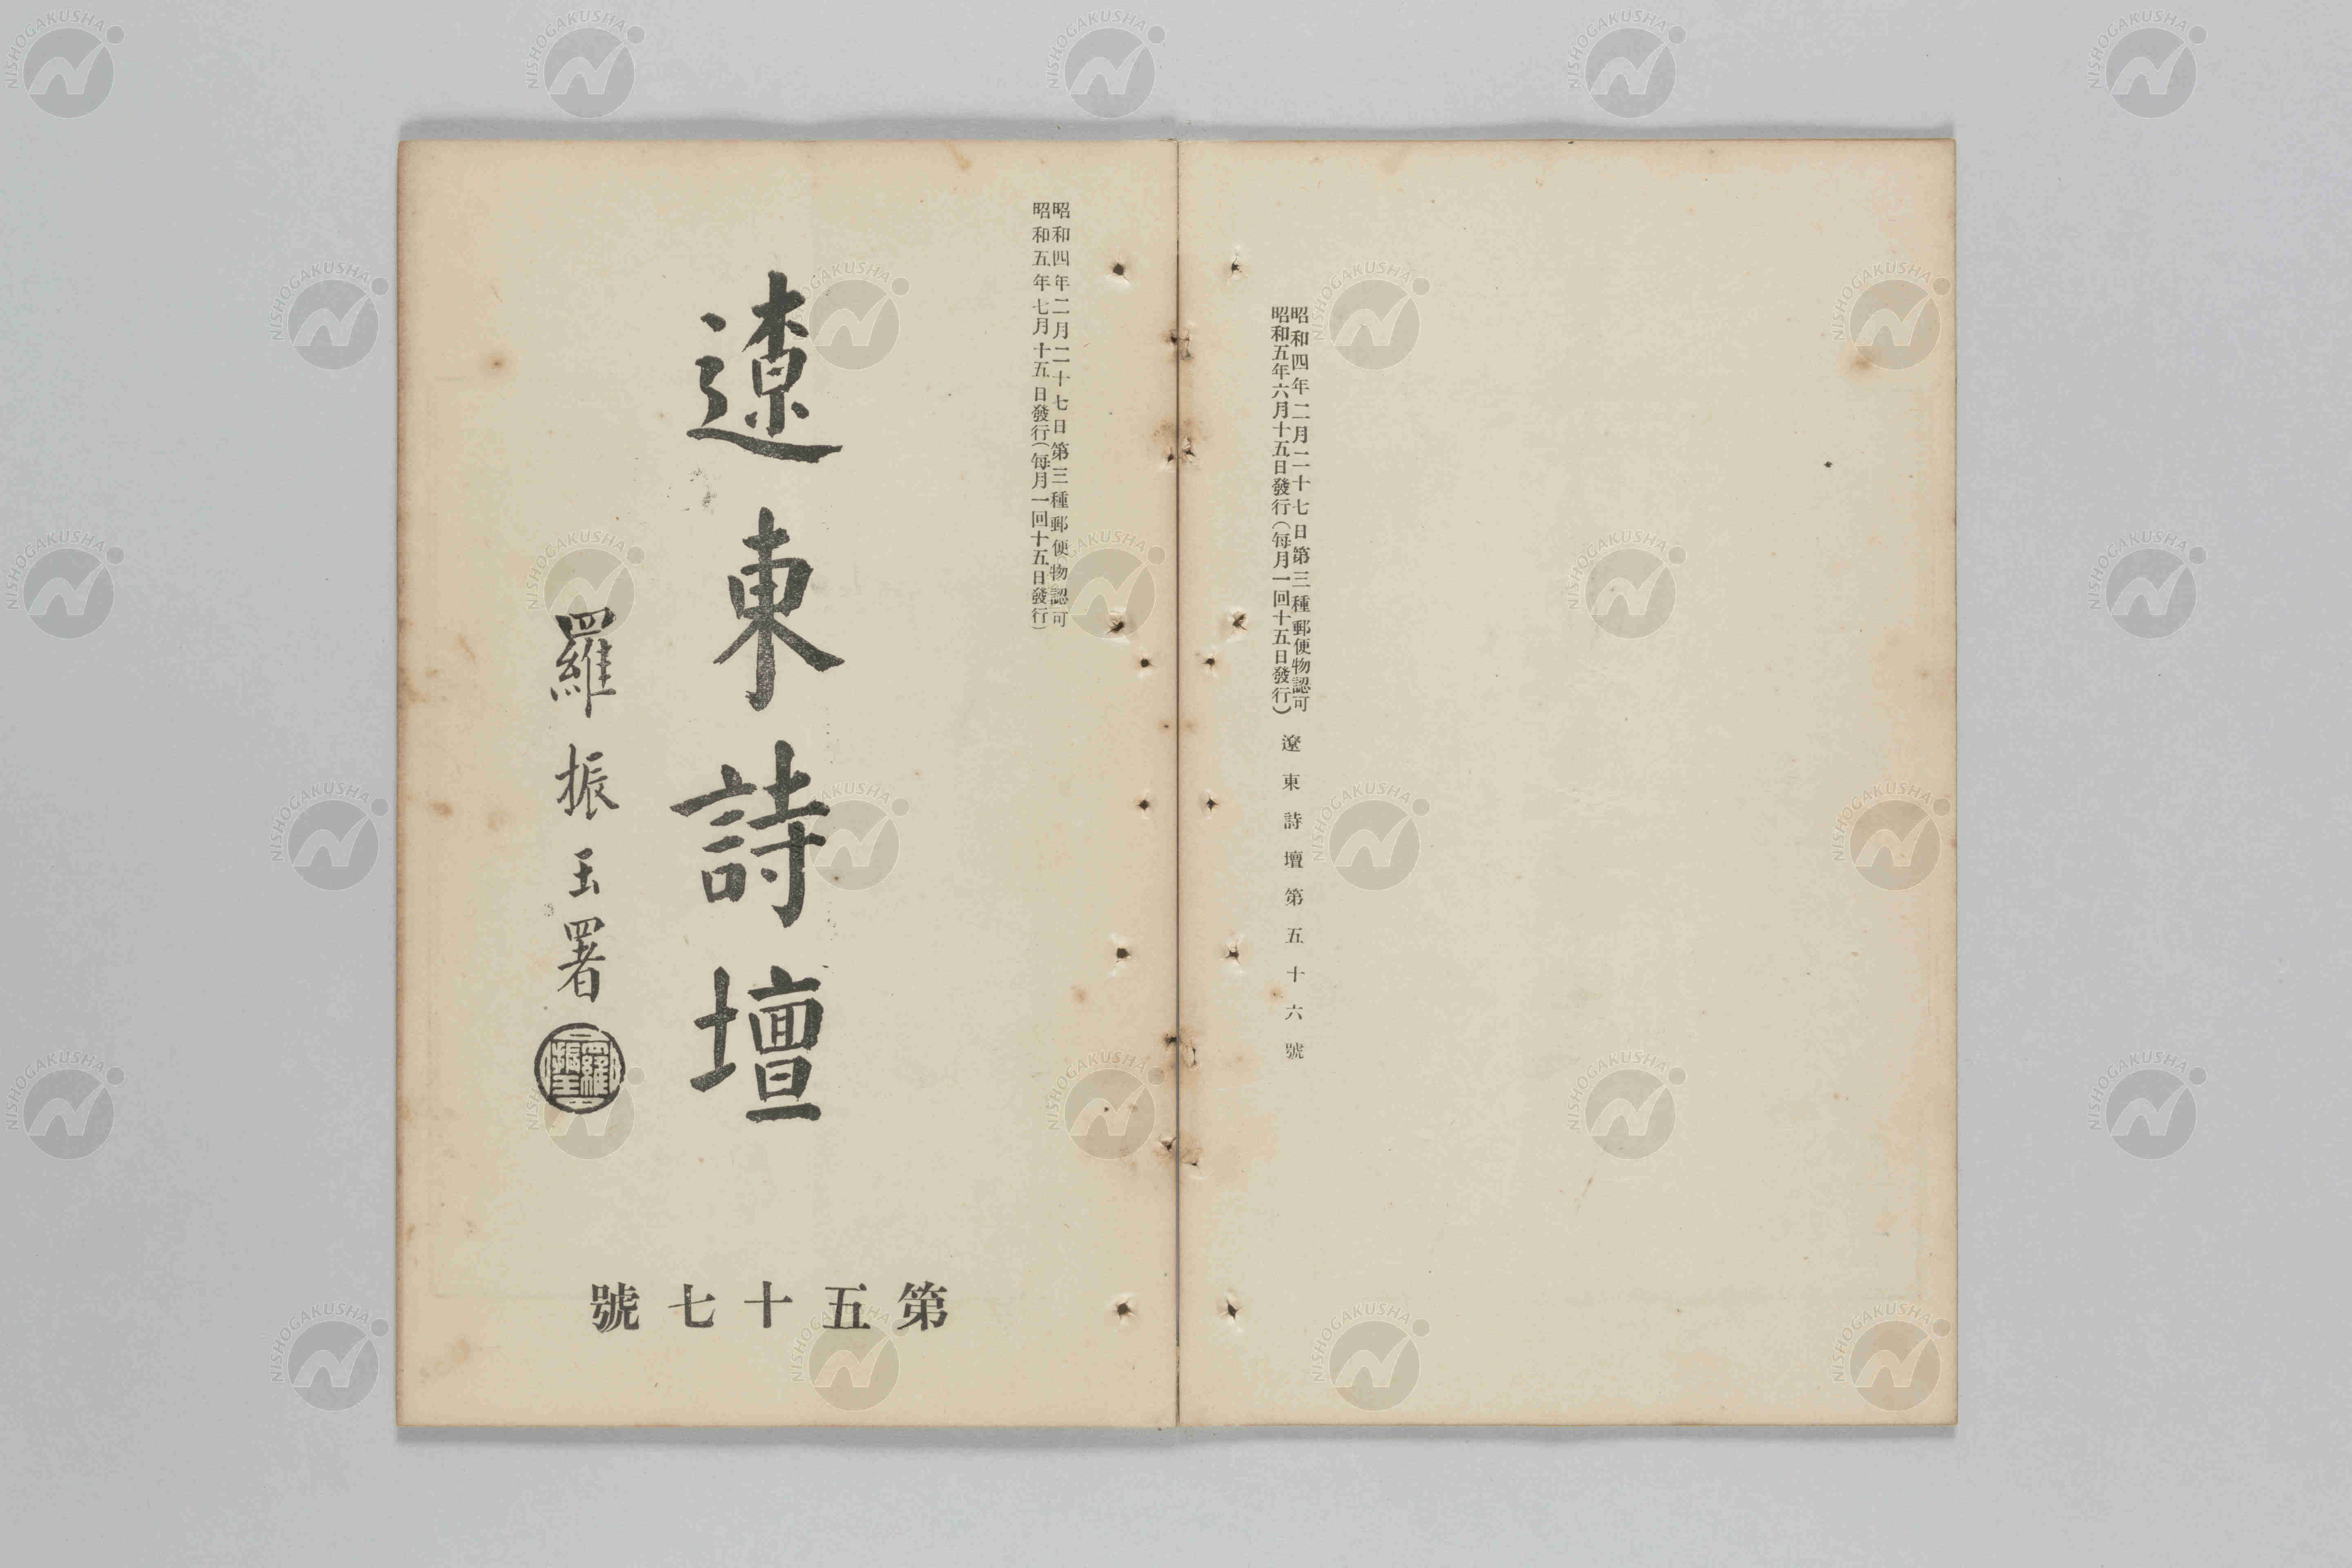 昭和四年二月二十七日第三種郵便物認可
昭和五年六月十五日發行(每月一回十五日發行)
遼東詩壇第五十六號
昭和四年二月二十七日第三種郵便物認可
昭和五年七月十五日發行(每月一回十五日發行)
遼東詩壇
羅振玉署
羅振玉
第五十七號
NISHOGAKUSHA